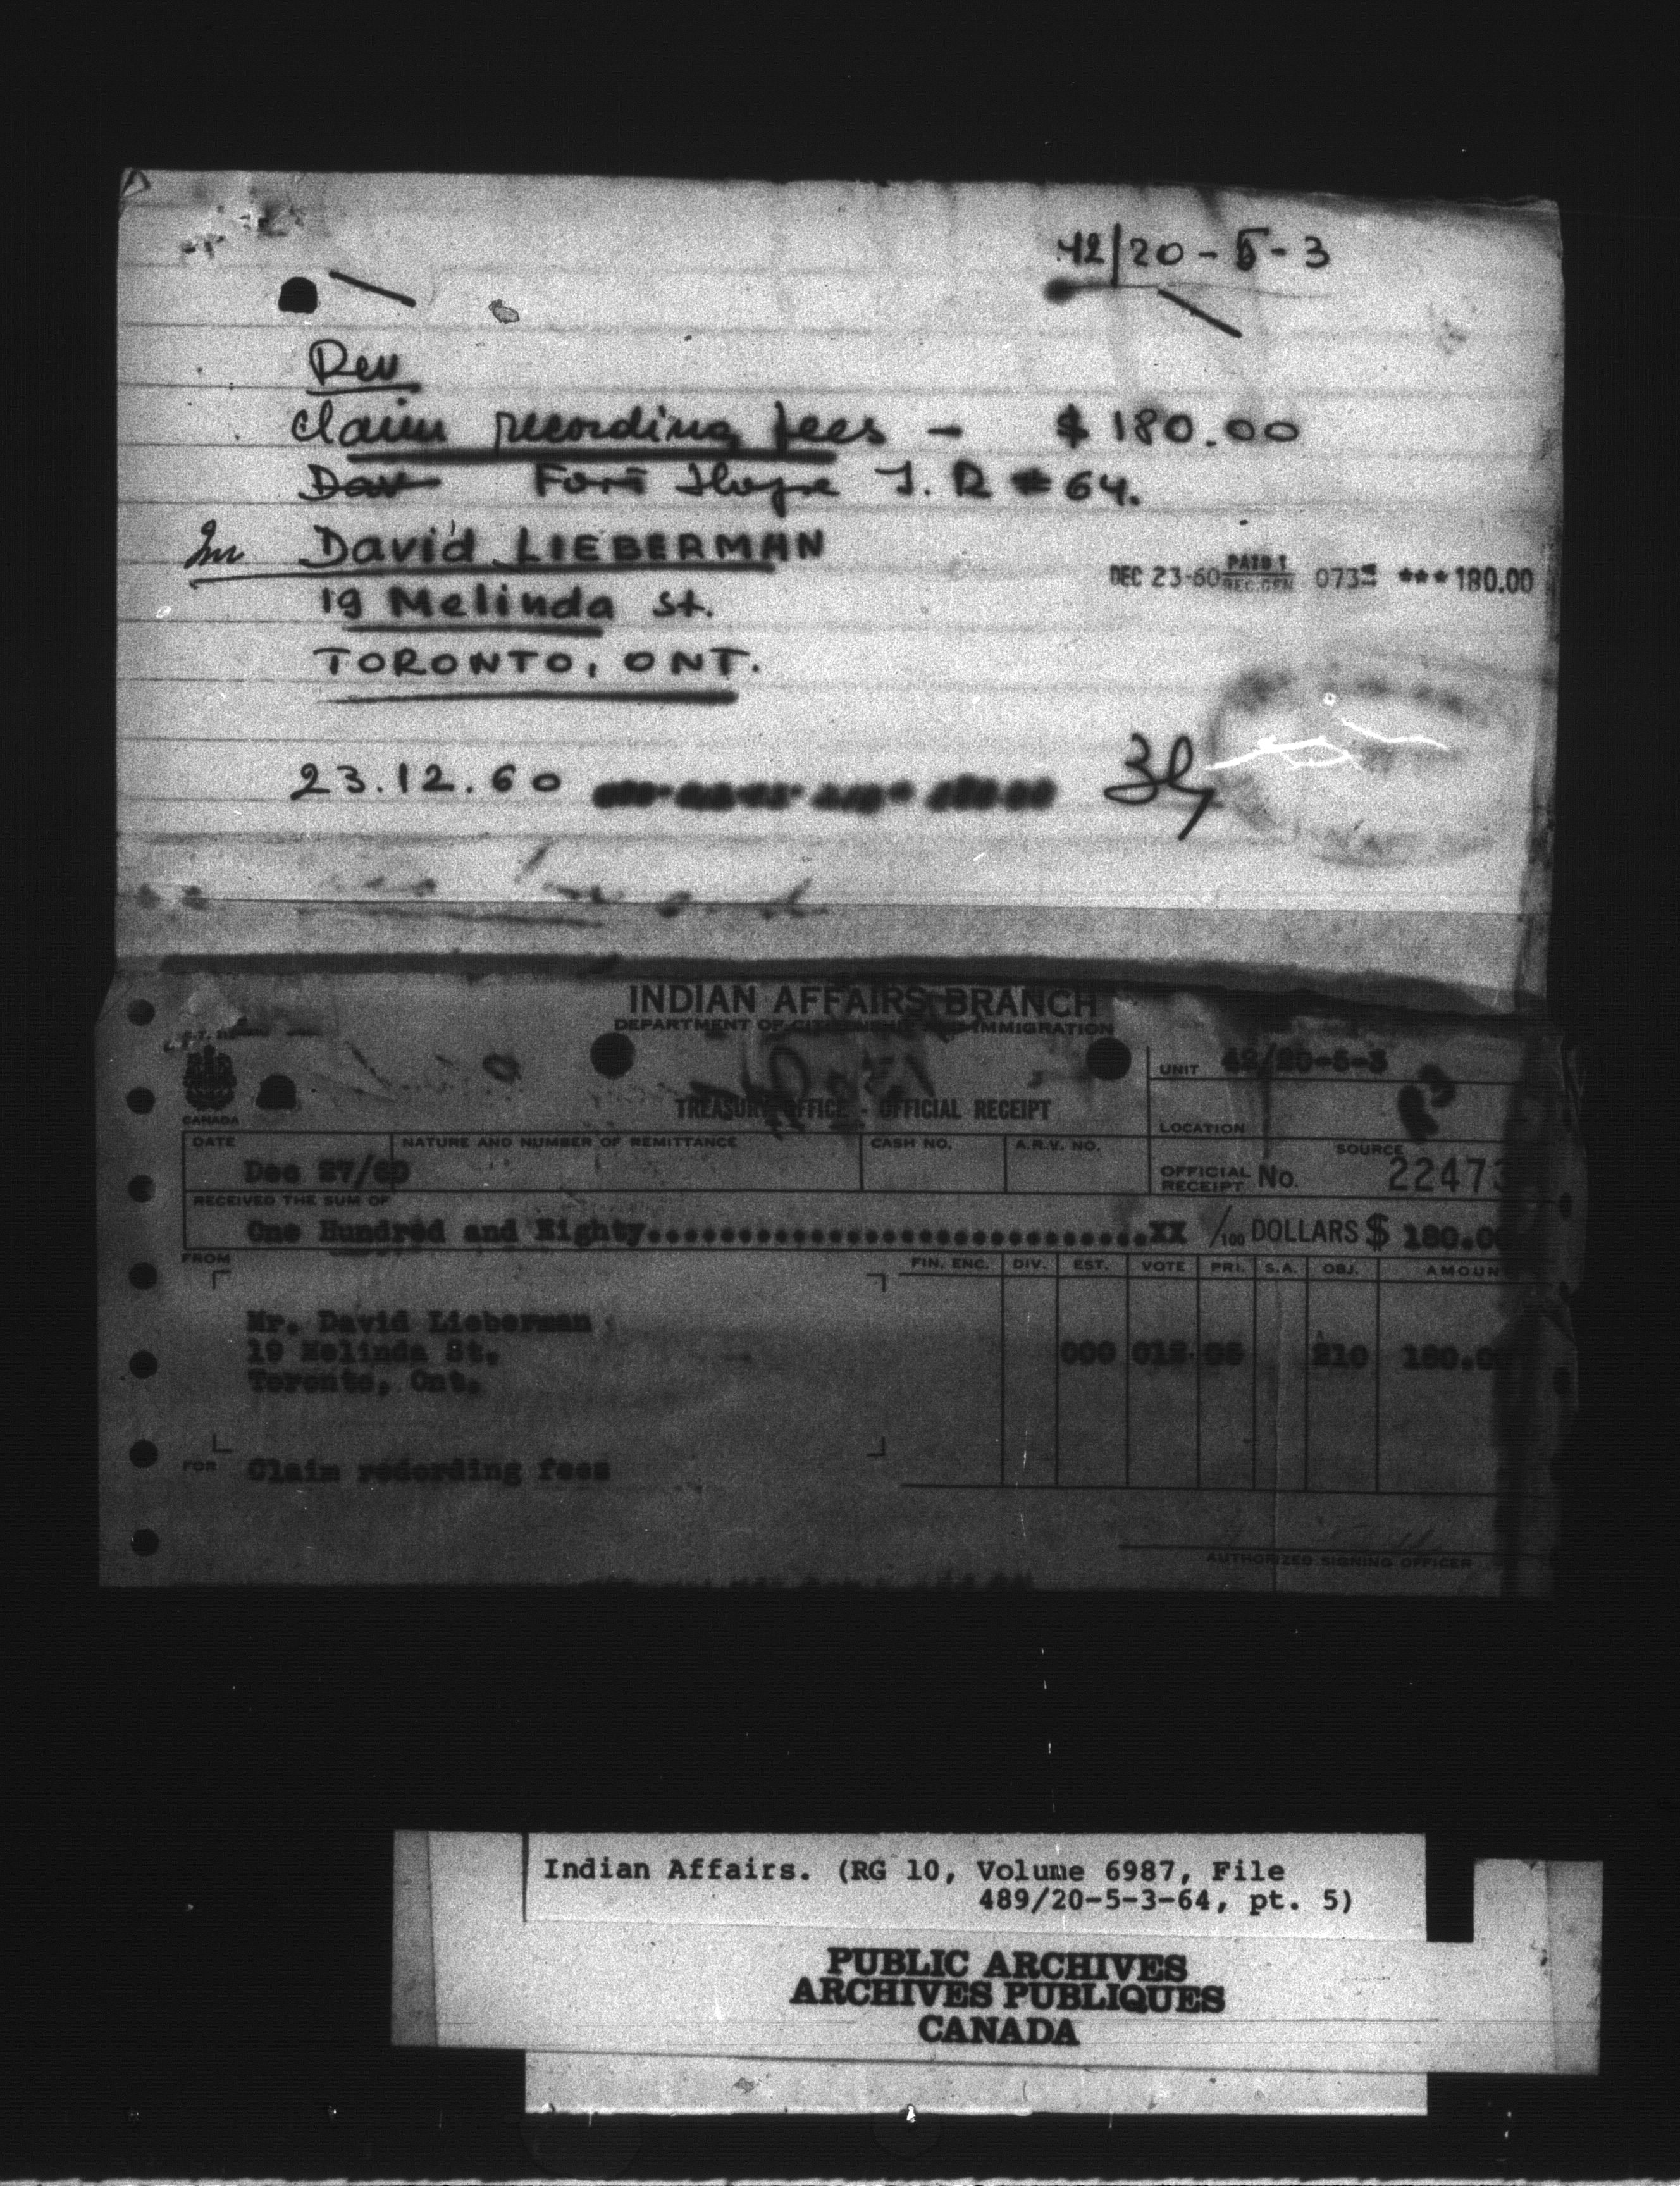 42/20-5-3
Rev
Claim recording fees - $ 180.00
Fort Hope I.R #64.
David LIEBERMAN
19 Melinda St.
TORONTO, ONT.
DEC 23-60 PAID 1 REC.GEN 073 ***180.00
23.12.60
INDIAN AFFAIRS BRANCH
DEPARTMENT OF CITIZENSHIP AND IMMIGRATION
UNIT 42/20-5-3
CANADA
TREASURY OFFICE - OFFICIAL RECEIPT
LOCATION
DATE NATURE AND NUMBER OF REMITTANCE CASH NO. A.R.V. NO. SOURCE
Dec 27/60 OFFICIAL RECEIPT No. 22473
RECEIVED THE SUM OF
One Hundred and Eighty..............................XX /100 DOLLARS $ 180.00
FROM FIN. ENC. DIV. EST. VOTE PRI. S.A. OBJ. AMOUNT
Mr. David Lieberman
19 Melinda St. 000 012 05 210 180.0
Toronto, Ont.
FOR Claim redording fees
AUTHORIZED SIGNING OFFICER
Indian Affairs. (RG 10, Volume 6987, File
489/20-5-3-64, pt. 5)
PUBLIC ARCHIVES
ARCHIVES PUBLIQUES
CANADA